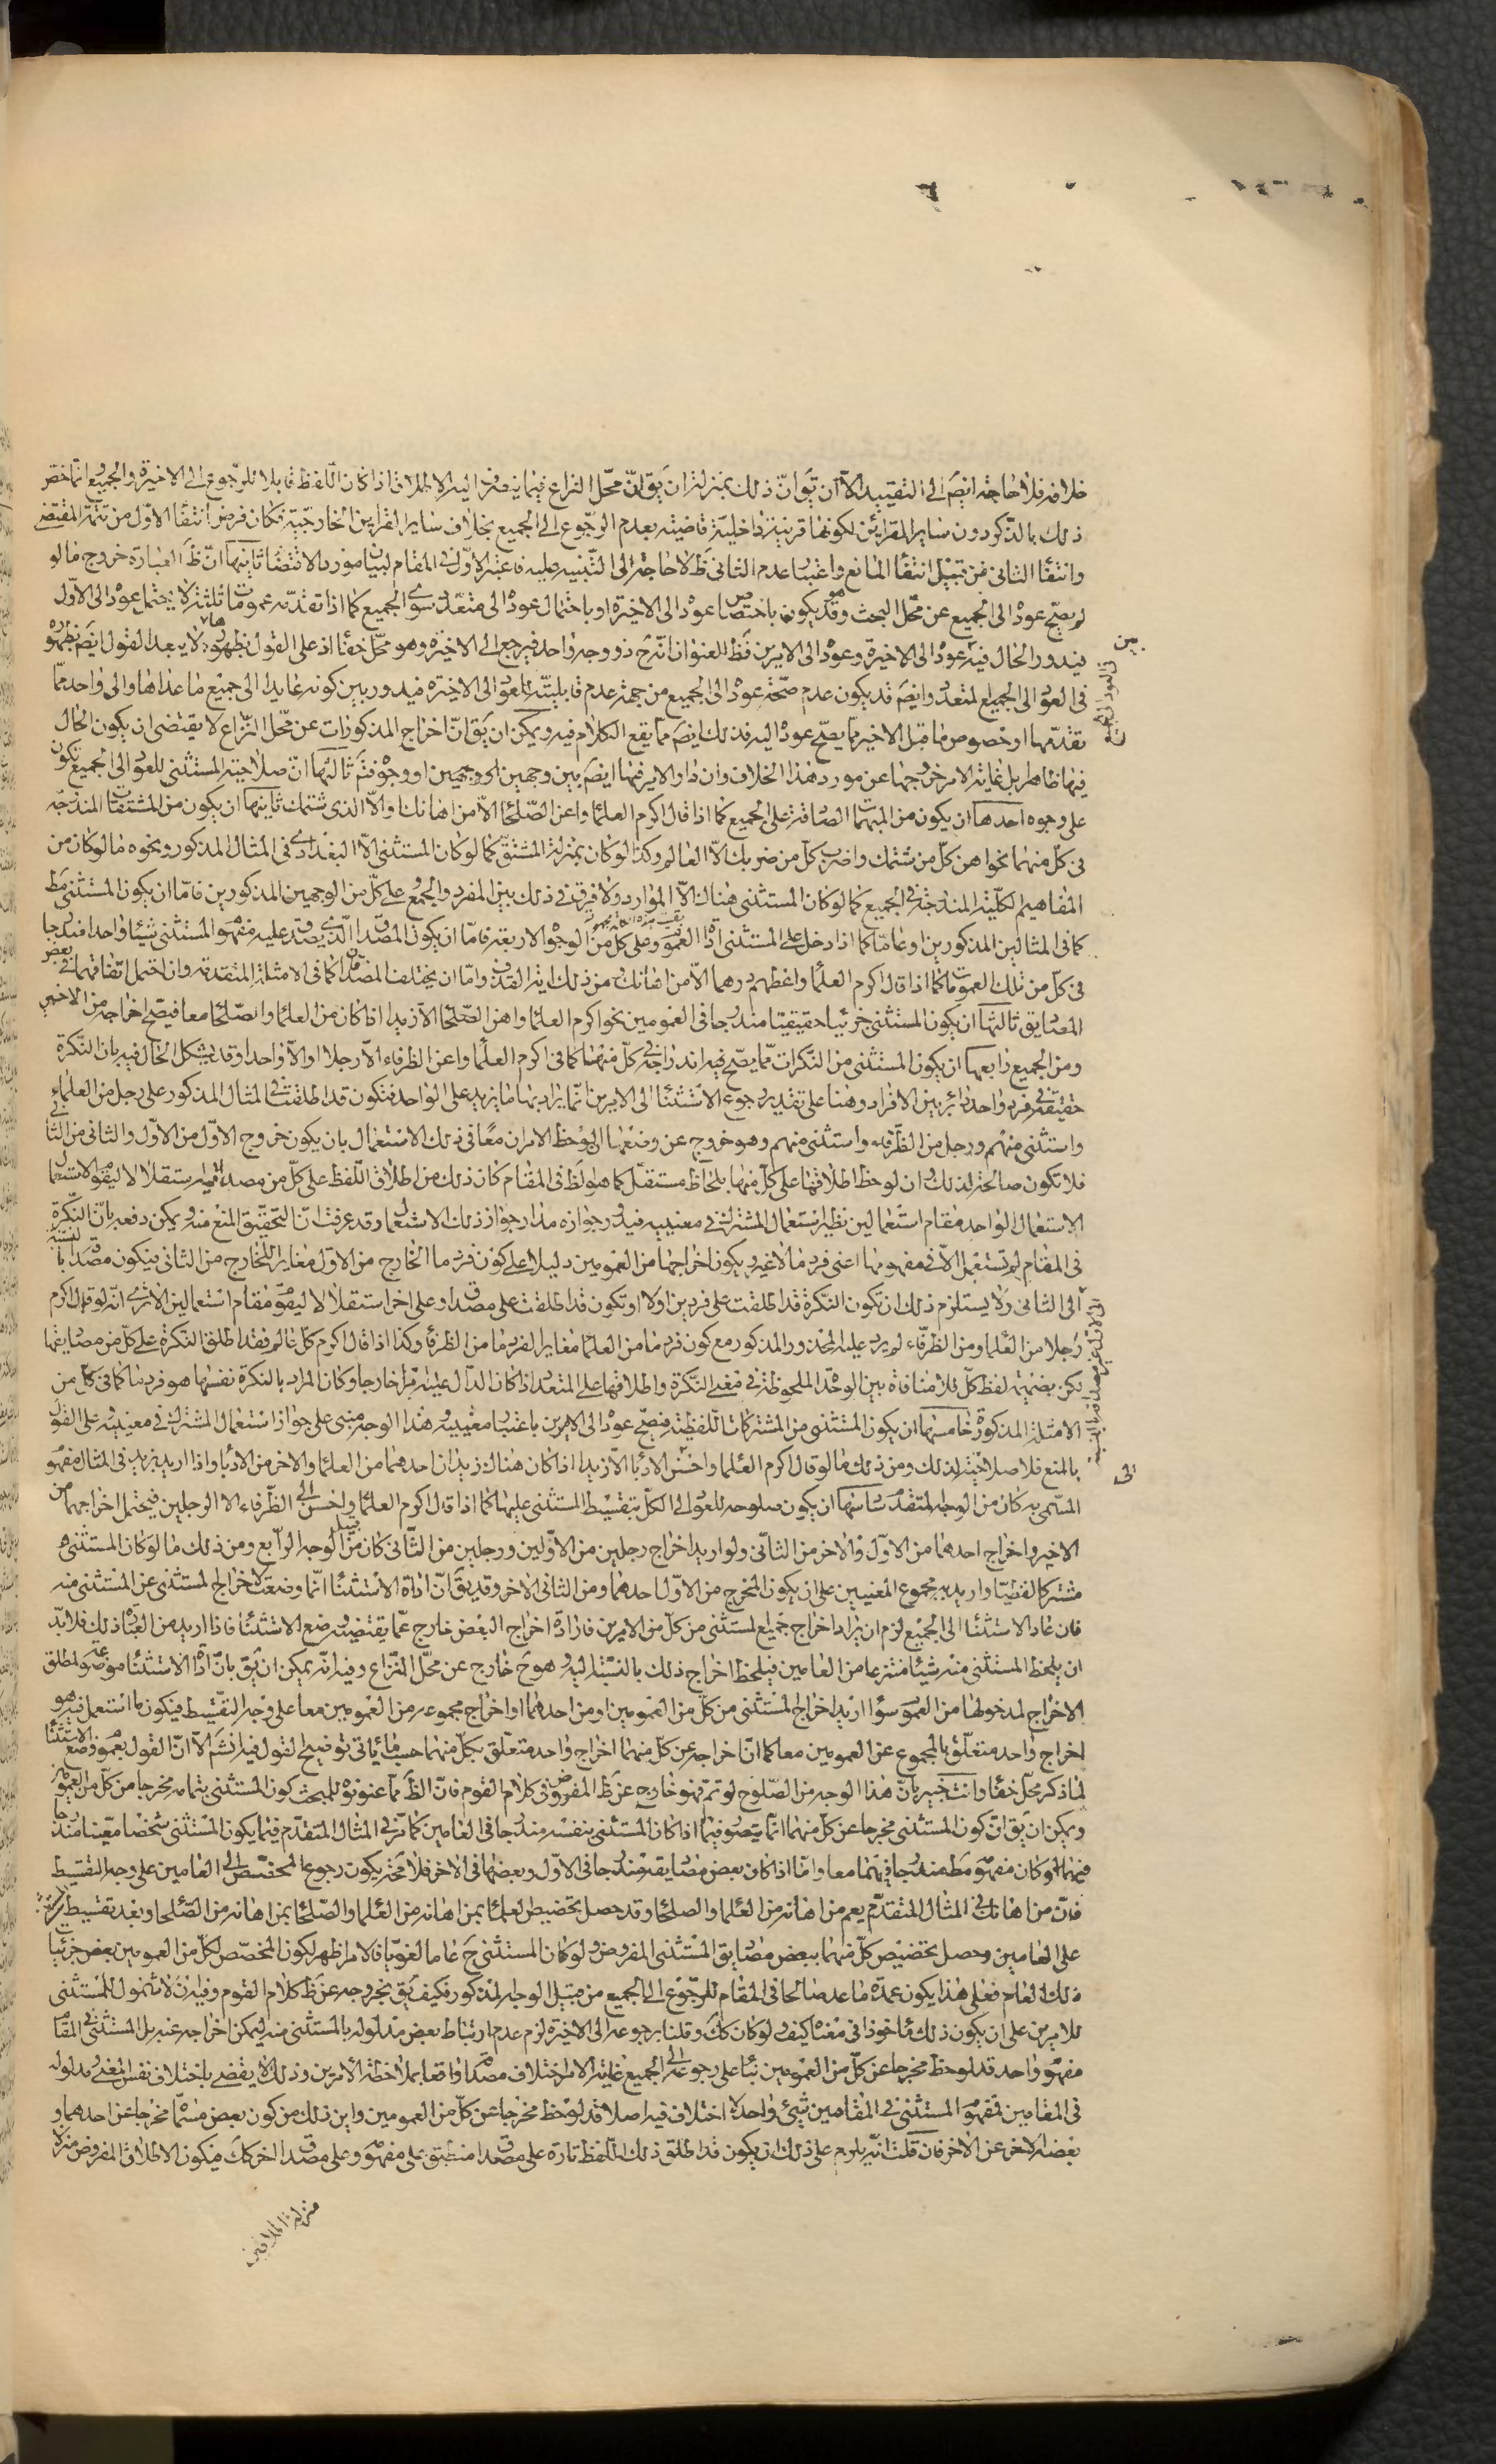 خلافه فلا حاجة ايضا الى التقييد الا ان يق ان ذلك بمنزلة ان يق ان محل النزاع فيما ينصرف اليه الاطلاق اذا كان اللفظ قابلا للرجوع الى الاخيرة والجميع انما خص
ذلك بالذكر دون ساير القرائن لكونها قرينة داخلية قاضية بعدم الرجوع الى الجميع بخلاف ساير القرائن الخارجية فكان فرض انتفاء الاول من تتمة المقتضى
وانتفاء الثانى من قبيل انتفاء المانع واعتبار عدم الثانى ظ لا حاجة الى التنبيه عليه فاعتبر الاول فى المقام لبيان مورد الاقتضاء ثانيها ان ظ العبارة خروج ما لو
لم يصح عوده الى الجميع عن محل البحث وقد يكون باختصاص عوده الى الاخيرة او باحتمال عوده الى متعدد سوى الجميع كما اذا تقدمه عمومات ثلثة لا يحتمل عوده الى الاول
فيدور الحال فيه عوده الى الاخيرة وعوده الى الامرين فظ العنوان انه ح ذو وجه واحد فيرجع الى الاخيرة وهو محل خفاء اذ على القول بظهوره لا يبعد القول ايضا بظهوره
فى العود الى الجميع المتعدد وايضا قد يكون عدم صحة عوده الى الجميع من جهة عدم قابليته للعود الى الاخيرة فيدور بين كونه عايدا الى جميع ما عداها والى واحد مما
تقدمها او خصوص ما قبل الاخير مما يصح عوده اليه فذلك ايضا مما يقع الكلام فيه ويمكن ان يق ان اخراج المذكورات عن محل النزاع لا يقتضى ان يكون الحال
فيها ظاهرا بل غاية الامر خروجها عن مورد هذا الخلاف وان دار الامر فيها ايضا بين وجهين او وجوه فتم ثالثها ان صلاحية المستثنى للعود الى الجميع يكون
على وجوه احدها ان يكون من المبهمات الصادقة على الجميع كما اذا قال اكرم العلماء واعن الصلحاء الا من اهانك والا الذى شتمك ثانيها ان يكون من المشتقات المندرجة
فى كل منهما نحو اهن كل من شتمك واضرب كل من ضربك الا العالم وكذا لو كان بمنزلة المشتق كما لو كان المستثنى الا البغدادى فى المثال المذكور ونحوه ما لو كان من
المفاهيم الكلية المندرجة فى الجميع كما لو كان المستثنى هناك الا الموارد ولا فرق فى ذلك بين المفرد والجمع على كل من الوجهين المذكورين فاما ان يكون المستثنى مط
كما فى المثالين المذكورين او عاما كما اذا دخل على المستثنى اداة العموم وعلى كل من الوجوه الاربعة فاما ان يكون المصداق الذى يصدق عليه مفهوم المستثنى شيئا واحدا مندرجا
فى كل من تلك العمومات كما اذا قال اكرم العلماء واعطهم درهما الا من اهانك من ذلك واما ان يختلف المصداق كما فى الامثلة المتقدمة وان احتمل اتفاقهما فى بعض
المصاديق ثالثها ان يكون المستثنى جزئيا حقيقيا مندرجا فى العمومين نحو اكرم العلماء واهن الصلحاء الا زيدا اذا كان من العلماء والصلحاء معا فيصح اخراجه من الاخير
ومن الجميع رابعها ان يكون المستثنى من النكرات مما يصح فيه اندراجه فى كل منهما كما فى اكرم العلماء واعن الظرفاء الا رجلا او الا واحدا وقد يشكل الحال فيه بان النكرة
حقيقة فى فرد واحد دائر بين الافراد وهنا على تقدير رجوع الاستثناء الى الامرين انما يراد بها ما يزيد على الواحد فتكون قد اطلقت فى المثال المذكور على رجل من العلماء
واستثنى منهم ورجل من الظرفاء واستثنى منهم وهو خروج عن وضعها ان لوحظ الامران معا فى ذلك الاستعمال بان يكون خروج الاول من الاول والثانى من الثانى
فلا تكون صالحة لذلك وان لوحظ اطلاقها على كل منها بلحاظ مستقل كما هو لظ فى المقام كان ذلك من اطلاق اللفظ على كل من مصداقيه استقلالا ليقوم الاستعمال
الاستعمال الواحد مقام استعمالين نظير استعمال المشترك فى معنييه فيدور جوازه مدار جواز ذلك الاستعمال وقد عرفت ان التحقيق المنع منه ويمكن دفعه بان النكرة
فى المقام لم تستعمل الا فى مفهومها اعنى فرد ما لا غير ويكون اخراجها من العمومين دليلا على كون فرد ما الخارج من الاول مغايرا للخارج من الثانى فيكون مصداقا بالنسبة
الى الثانى ولا يستلزم ذلك ان تكون النكرة قد اطلقت على فردين اولا او تكون قد اطلقت على مصداق وعلى اخر استقلالا ليقوم مقام استعمالين الا ترى انه لو قال اكرم
رجلا من العلماء ومن الظرفاء لم يرد عليه المحذور المذكور مع كون فرد ما من العلماء مغايرا لفرد ما من الظرفاء وكذا اذا قال اكرم كل عالم فقد اطلق النكرة على كل من مصاديقها
لكن بضميمة لفظ كل فلا منافاة بين الوحدة الملحوظة فى معنى النكرة واطلاقها على المتعدد اذا كان الدال عليه امرا خارجا وكان المراد بالنكرة نفسها هو فرد ما كما فى كل من
الامثلة المذكورة خامسها ان يكون المستثنى من المشتركات اللفظية فيصح عوده الى الامرين باعتبار معنييه وهذا الوجه مبنى على جواز استعمال المشترك فى معنييه وعلى القول
بالمنع فلا صلاحية لذلك ومن ذلك ما لو قال اكرم العلماء واحسن الادباء الا زيدا اذا كان هناك زيدان احدهما من العلماء والاخر من الادباء واذا اريد بزيد فى المثال مفهوم
المسمى به كان من الوجه المتقدم سادسها ان يكون صلوحه للعود الى الكل بتقسيط المستثنى عليها كما اذا قال اكرم العلماء واحسن الى الظرفاء الا الرجلين فيحتمل اخراجهما من
الاخير واخراج احدهما من الاول والاخر من الثانى ولو اريد اخراج رجلين من الاولين ورجلين من الثانى كان من قبيل الوجه الرابع ومن ذلك ما لو كان المستثنى
مشتركا لفظيا واريد به مجموع المعنيين على ان يكون المخرج من الاول احدهما ومن الثانى الاخر وقد يق ان اداة الاستثناء انما وضعت لاخراج المستثنى عن المستثنى منه
فان عاد الاستثناء الى الجميع لزم ان يراد اخراج جميع المستثنى من كل من الامرين فارادة اخراج البعض خارج عما يقتضيه وضع الاستثناء فاذا اريد من العبارة ذلك فلابد
ان يلحظ المستثنى منه شيئا منتزعا من العامين فيلحظ اخراج ذلك بالنسبة اليه وهو ح خارج عن محل النزاع وفيه انه يمكن ان يق بان اداة الاستثناء موضوعة لمطلق
الاخراج لمدخولها من العموم سواء اريد اخراج المستثنى من كل من العمومين او من احدهما او اخراج مجموعه من العمومين معا على وجه التقسيط فيكون ما استعمل فيه هو
اخراج واحد متعلق بالمجموع عن العمومين معا كما ان اخراجه عن كل منهما اخراج واحد متعلق بكل منهما حسبما ياتى توضيح القول فيه انشم الا ان القول بعموم وضع الاستثناء
لما ذكر محل خفاء وانت خبير بان هذا الوجه من الصلوح لو تم فهو خارج عن ظ المفروض فى كلام القوم فان الظ مما عنونوه للبحث كون المستثنى بتمامه مخرجا من كل من العمومين
ويمكن ان يق ان كون المستثنى مخرجا عن كل منهما انما يتصور فيما اذا كان المستثنى بنفسه مندرجا فى العامين كما فى المثال المتقدم فيما يكون المستثنى شخصا معينا مندرجا
فيهما او كان مفهومه مط مندرجا فيهما معا واما اذا كان بعض مصاديقه مندرجا فى الاول وبعضها فى الاخر فلا محة يكون رجوع المخصص الى العامين على وجه التقسيط
فان من اهانك فى المثال المتقدم يعم من اهانه من العلماء والصلحاء وقد حصل تخصيص العلماء بمن اهانه من العلماء والصلحاء بمن اهانه من الصلحاء وبعد تقسيط
على العامين وحصل تخصيص كل منهما ببعض مصاديق المستثنى المفروض ولو كان المستثنى ح عاما لغويا فالامر اظهر لكون المخصص لكل من العمومين بعض جزئيات
ذلك العام فعلى هذا يكون عمدة ما عد صالحا فى المقام للرجوع الى الجميع من قبيل الوجه المذكور فكيف يق بخروجه عن ظ كلام القوم وفيه ان لا شمول للمستثنى
للامرين على ان يكون ذلك ماخوذا فى معناه كيف ولو كان كك وقلنا برجوعه الى الاخيرة لزم عدم ارتباط بعض مدلوله بالمستثنى منه ليمكن اخراجه عنه بل المستثنى فى المقام
مفهوم واحد قد لوحظ مخرجا عن كل من العمومين بناء على رجوعه الى الجميع غاية الامر اختلاف مصداقه واقعا بملاحظة الامرين وذلك لا يقضى باختلاف نفس المعنى ومدلوله
فى المقامين فمفهوم المستثنى فى المقامين شىء واحد لا اختلاف فيه اصلا قد لوحظ مخرجا عن كل من العمومين واين ذلك من كون بعض منهما مخرجا عن احدهما و
بعضه الاخر عن الاخر فان قلت انه يلزم على ذلك ان يكون قد اطلق ذلك اللفظ تارة على مصداق منطبق على مفهومه وعلى مصداق اخر كك فيكون الاطلاق المفروض منزلا
منزلة اطلاقين